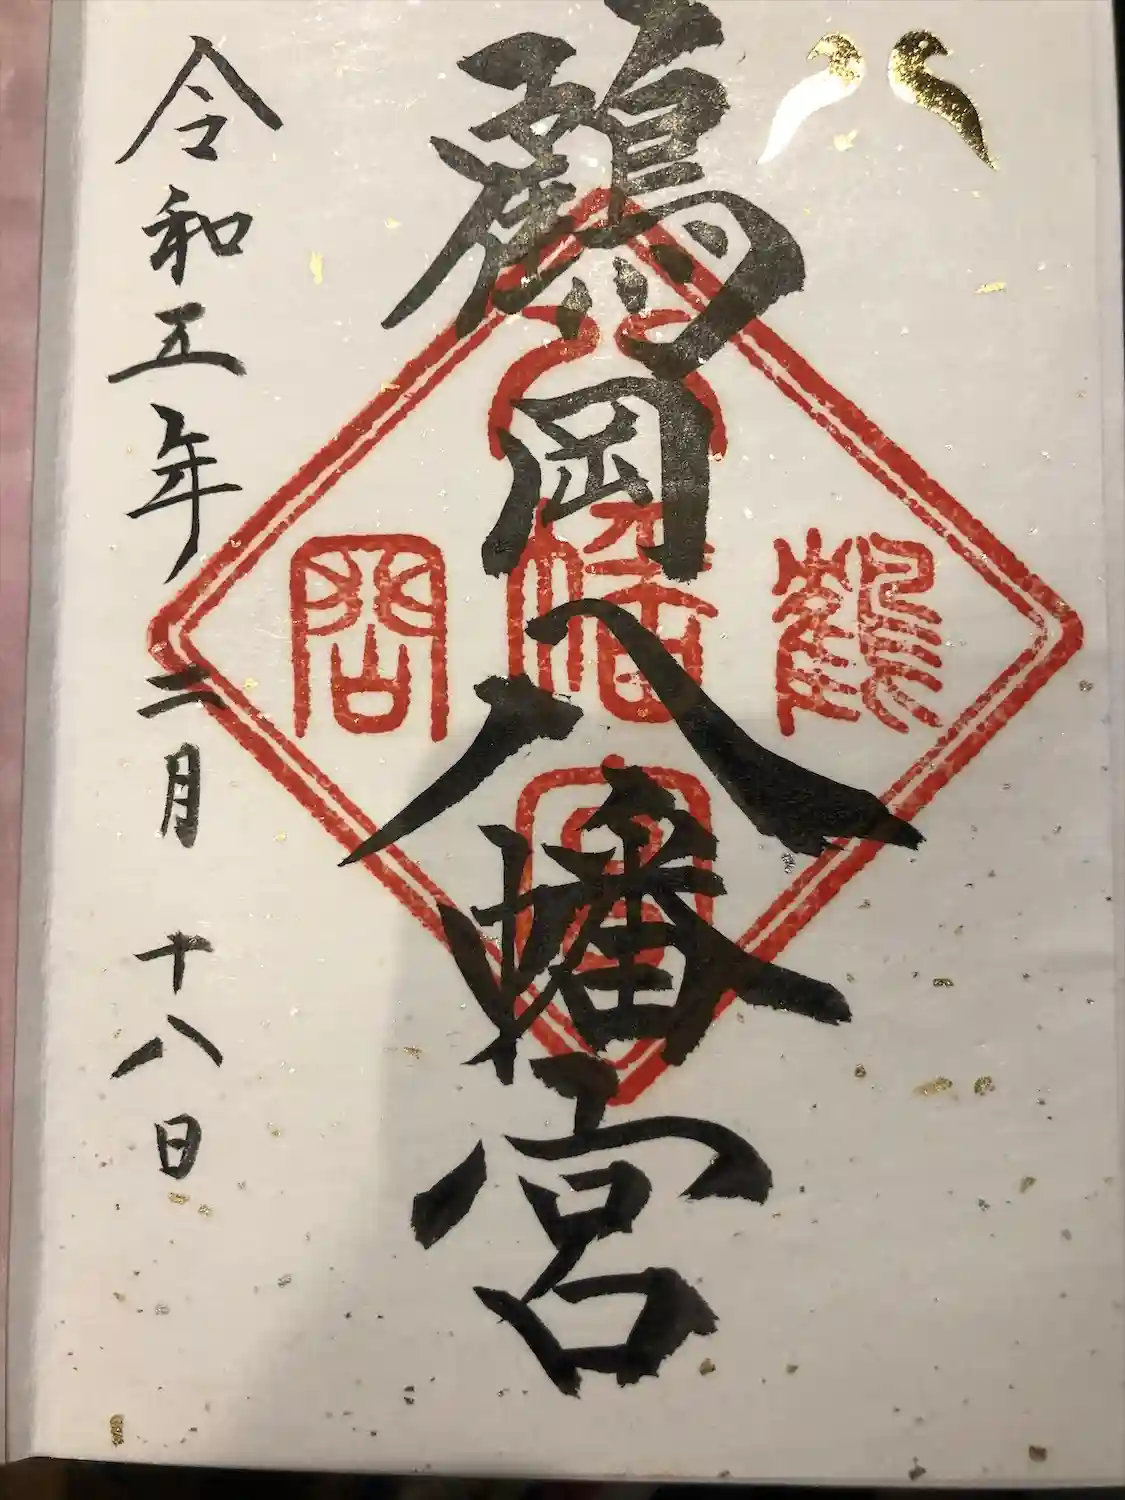 鶴岡八幡宮
鶴 八幡宮 岡
令和五年二月十八日